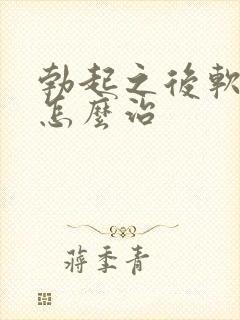 勃起之後軟
怎麼治
蔣季青